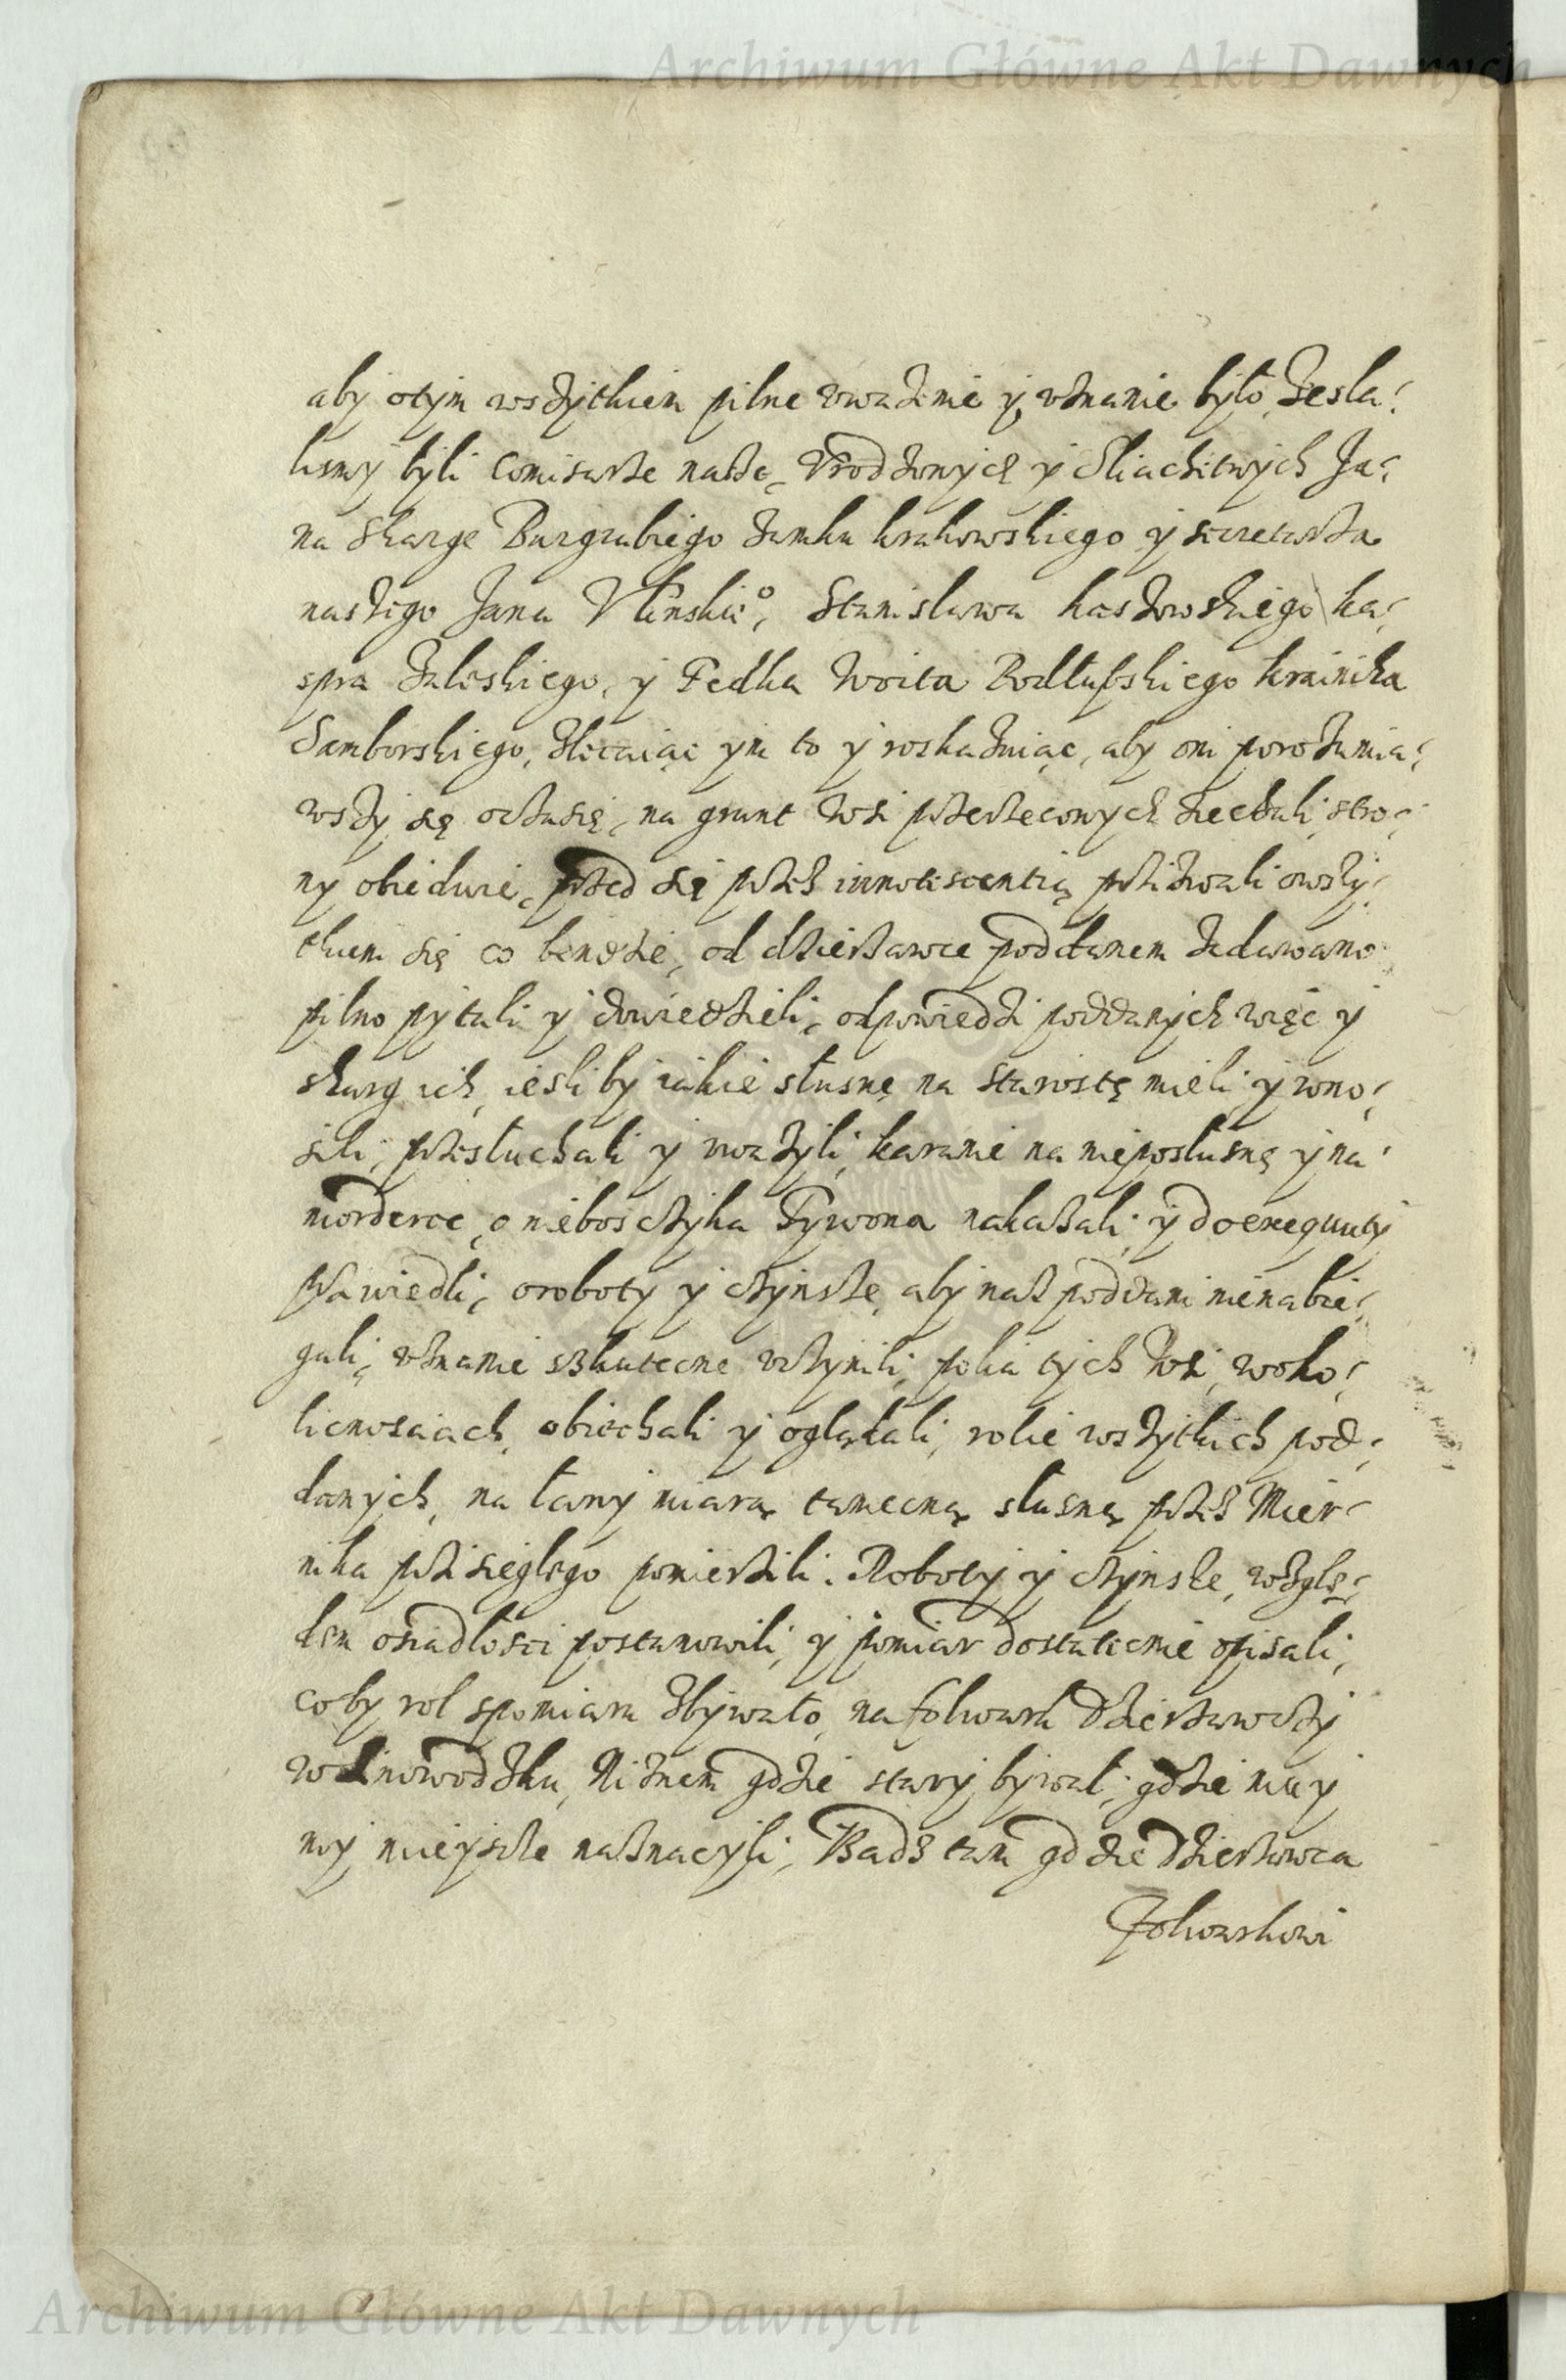 Archiwum Główne Akt Dawnych
aby otym wszytkiem pilne vważenie y vznanie było, zesla-
lismy byli Comisarze nasze, Vrodzonych y Sliachetnych Ja-
na Skarge Burgrabiego zamku krakowskiego y secretarza
naszego Jana Vlinskie°, Stanisława kaszowskiego ka-
spra Zaleskiego, y Fedka woita Podłubskiego krainika
Samborskiego, zlecaiąc ym to y roskazuiąc, aby oni porozumia-
wszy się oczasie, na grunt wsi przerzeconych ziechali, stro-
ny obiedwie, przed się przez innotescentią przizwali owszy-
tkiem się co bendzie, od dzierżawce poddanem zadawano
pilno pytali y dowiedzieli, odpowiedzi poddanych więc y
skarg ich, iesliby iakie słusne na starostę mieli y wno-
sili, przesłuchali y vważyli, karanie na nieposłusne y na
morderce, o nieboszczyka Tywona nakazali, y do exequuty
przywiedli, oroboty y czynsze, aby nasz poddani nienabie-
gali, vznanie szkutecne vczynili, pola tych wsi, woko-
licnosciach, obiechali y oglądali, rolie wszytkich pod-
danych, na łany miarą tamecną słusną przez Mier-
nika przisieglego pomierzili. Roboty y czynsze, wzglę-
dem osiadłosci postanowili, y pomiar dostatecnie opisali,
coby rol spomiaru zbywało, na folwark dzierzawczy
w Linowodzku, Niznem gdzie stary bywał, gdzie mu y
my mieysce naznacyli, Bądz tam gdzie Dzierzawca
Folwarkowi
Archiwum Główne Akt Dawnych